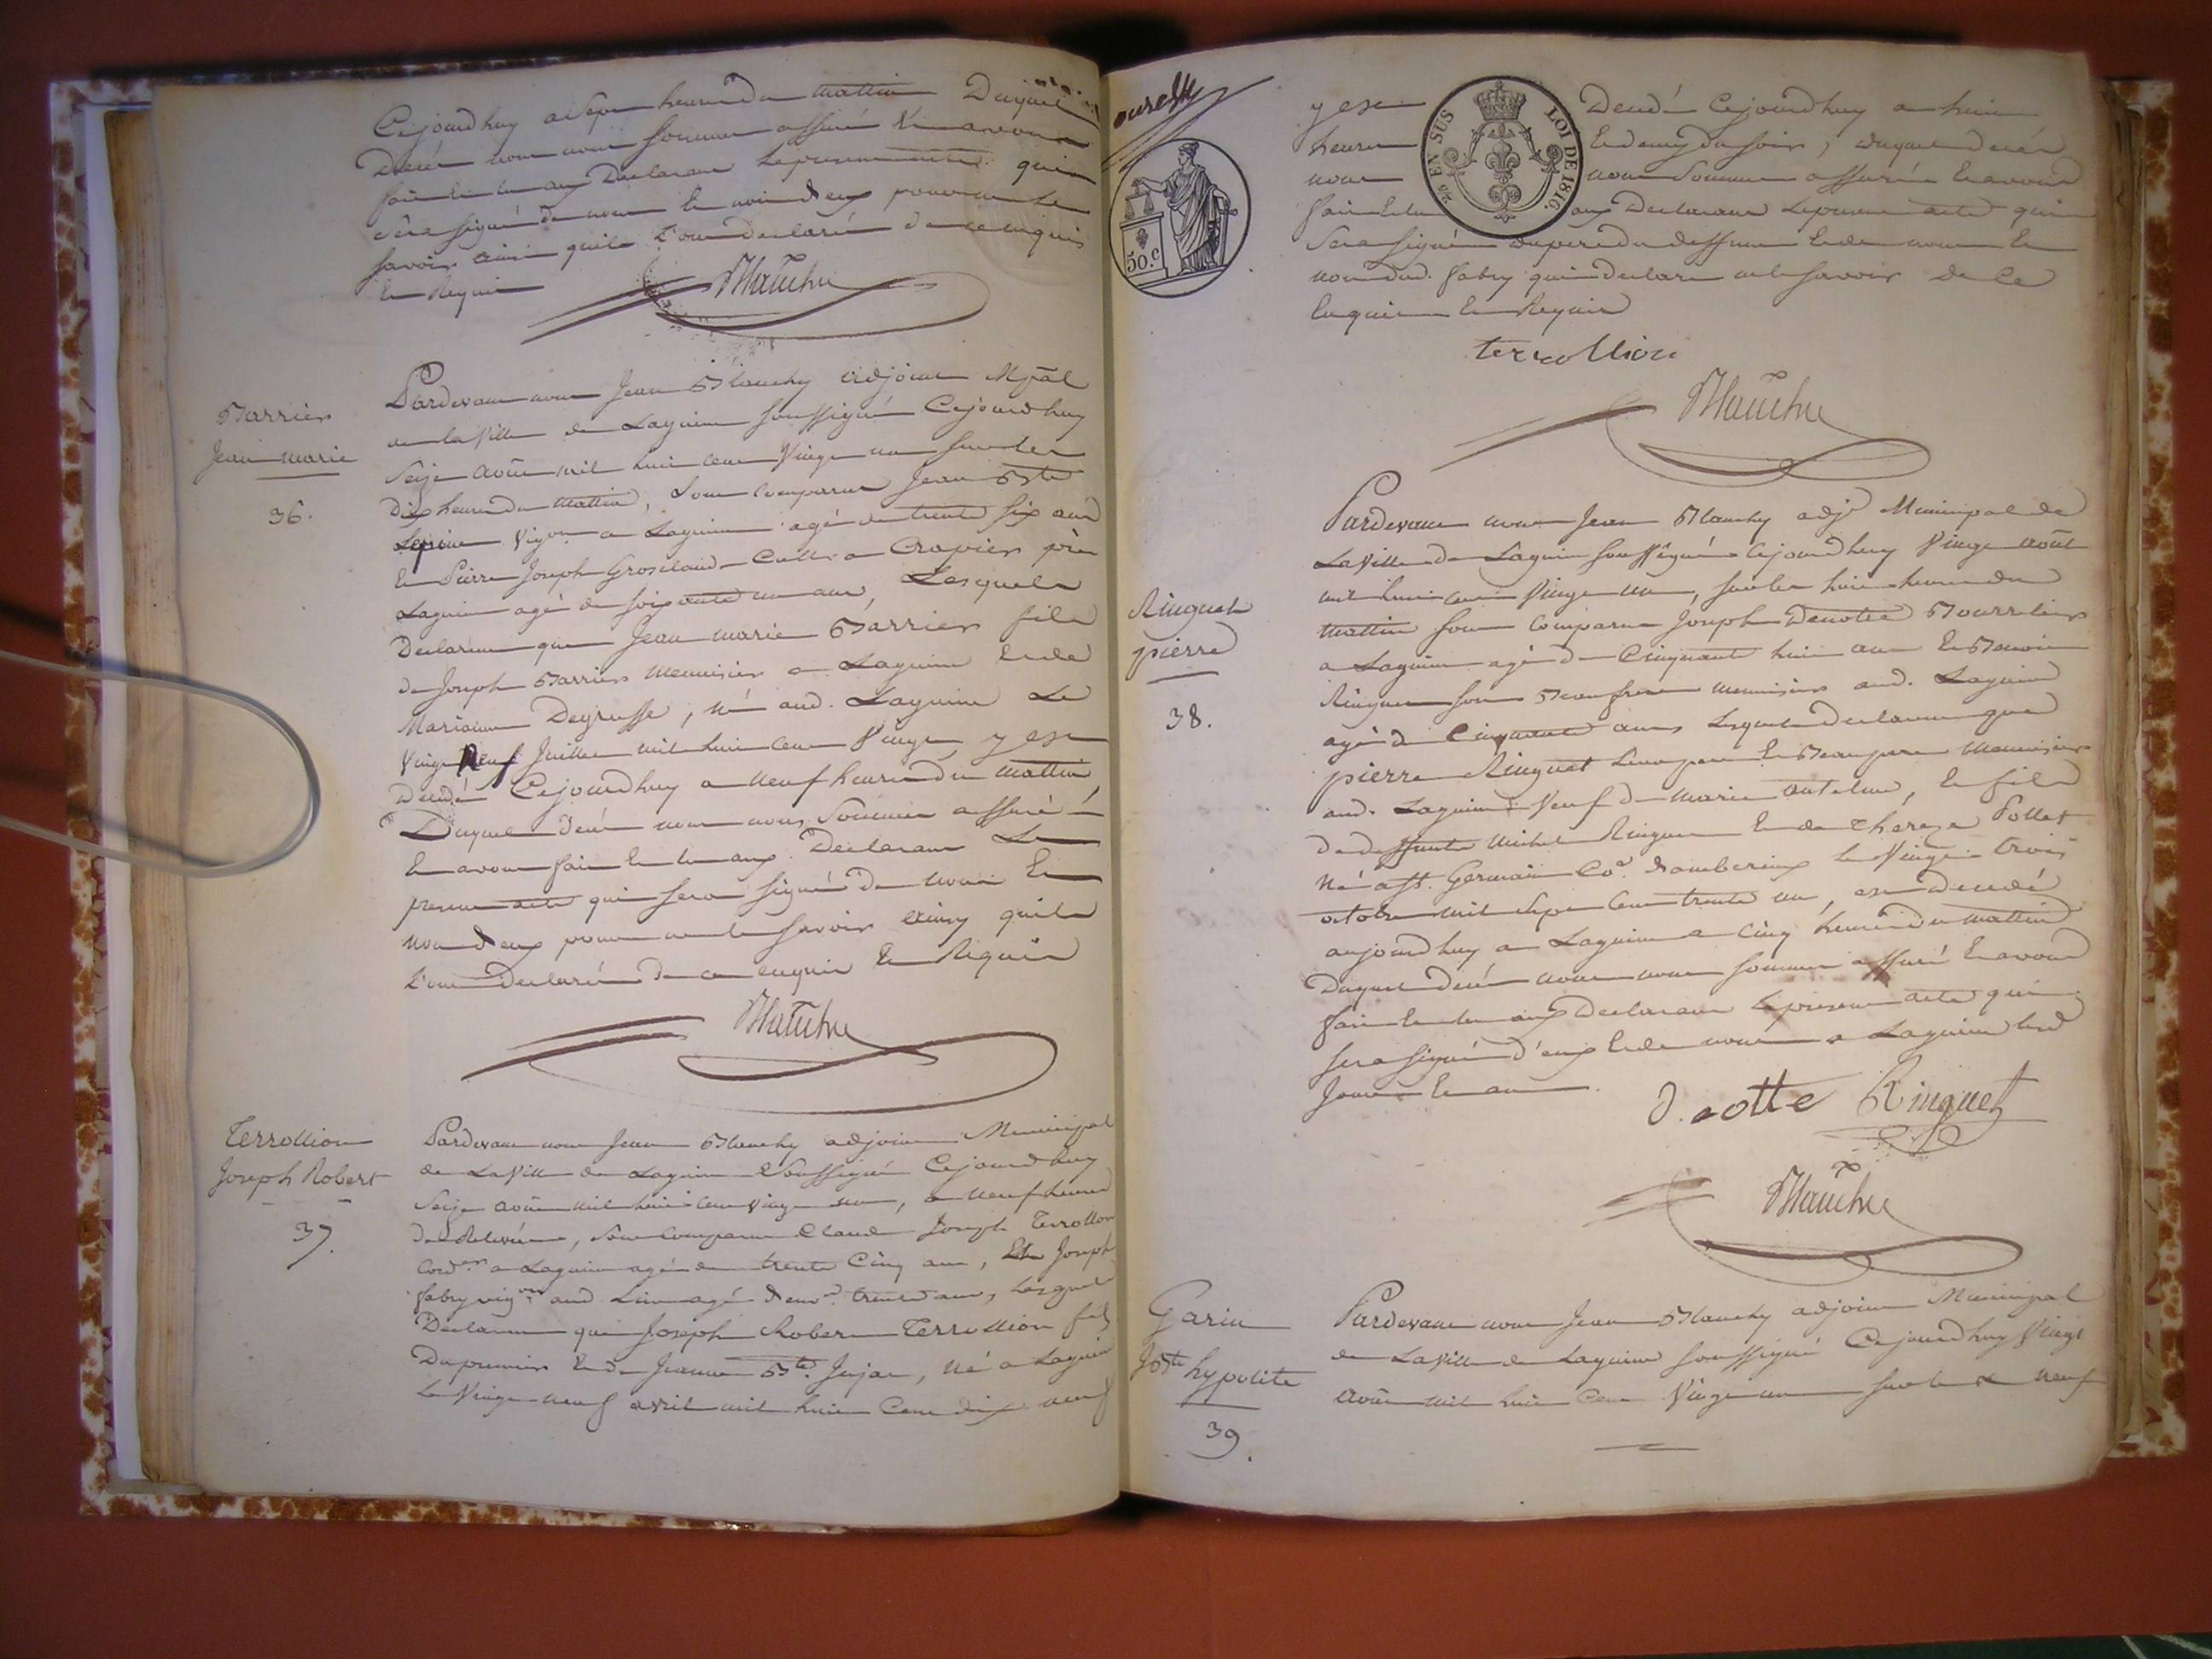 Cejourdhuy a Sept heures du mattin Duquel
Decés nous nous sommes assuré & avons
fait lecture aux Declarans le present acte qui
sera signé de nous & non d'eux pour ne le
savoir ainsi quils l'ont declaré de ce enquis
& Requis
Blanchy
Barrier
Jean marie
36.
Pardevant nous Jean Blanchy adjoint Mpāl
de la Ville de Lagnieu soussigné Cejourdhuy
Seize août mil huit cent Vingt un sur les
Dix heures du mattin, sont comparus Jean Bte
Vigon a Lagnieu agé de trente six ans
& Pierre Joseph Groseland Cultr a Cropier près
Lagnieu agé de soixante un ans, Lesquels
Declarent que Jean marie Barrier fils
de Joseph Barrier Menuisier a Lagnieu & de
Marianne Degrusse, né aud. Lagnieu Le
Vingt Neuf Juillet mil huit cent Vingt, y est
Decedé Cejourdhuy a neuf heures du mattin,
Duquel decés nous nous sommes assuré
& avons fait lecture aux Declarans Le
present acte qui sera signé de nous &
non d'eux pour ne le savoir ainsy quils
l'ont declaré de ce enquis & Requis
Blanchy
Terrollion
Joseph Robert
37.
Pardevant nous Jean Blanchy adjoint Municipal
de La Ville de Lagnieu Soussigné Cejourdhuy
Seize août mil huit cent vingt un, a neuf heures
de Relevée, sont comparus Claude Joseph Terrollion
Cordier a Lagnieu agé de trente Cinq ans, Et Joseph
fabry vigon aud Lieu agé d'env. trente ans, Lesquels
Declarent que Joseph Robert Terrollion fils
Du premier & de Jeanne Bte. Jujat, né a Lagnieu
Le Vingt neuf avril mil huit Cent dix neuf
50.c
25 EN SUS LOI DE 1816.
y est Decedé Cejourdhuy a huit
heures & demy du soir, duquel decés
nous nous sommes assurés & avons
fait lecture aux Declarans le present acte qui
sera signé du pere du deffunt & de nous &
non dud. fabry qui declare ne le savoir de ce
Enquis & Requis
terrollion
Blanchy
Ringuet
pierre
38.
Pardevant nous Jean Blanchy adjt Municipal de
La Ville de Lagnieu soussigné Cejourdhuy Vingt août
mil huit cent Vingt un, sur les huit heures du
mattin sont comparus Joseph Denotte Bourrelier
a Lagnieu agé de Cinquante huit ans & Benoit
Ringuet son Beaufrere menuisier aud. Lagnieu
agé de Cinquante ans Lesquels declarent que
pierre Ringuet Leur pere & Beaupere menuisier
aud. Lagnieu Veuf de Marie antelme, & fils
de deffunts Michel Ringuet & de Thereze Pollet
Né a St. Germain Co. d'amberieux le Vingt trois
octobre mil sept cent trente un, est Decedé
aujourdhuy a Lagnieu a cinq heures du mattin
Duquel decés nous nous sommes assuré & avons
fait lecture aux Declarans le present acte qui
sera signé d'eux & de nous a Lagnieu lesd
Jours & an.
D. notte Ringuet
Blanchy
Garin
Jn Bte hypolite
39.
Pardevant nous Jean Blanchy adjoint Municipal
de La Ville de Lagnieu soussigné Cejourdhuy Vingt
août mil huit Cent Vingt un sur les neuf